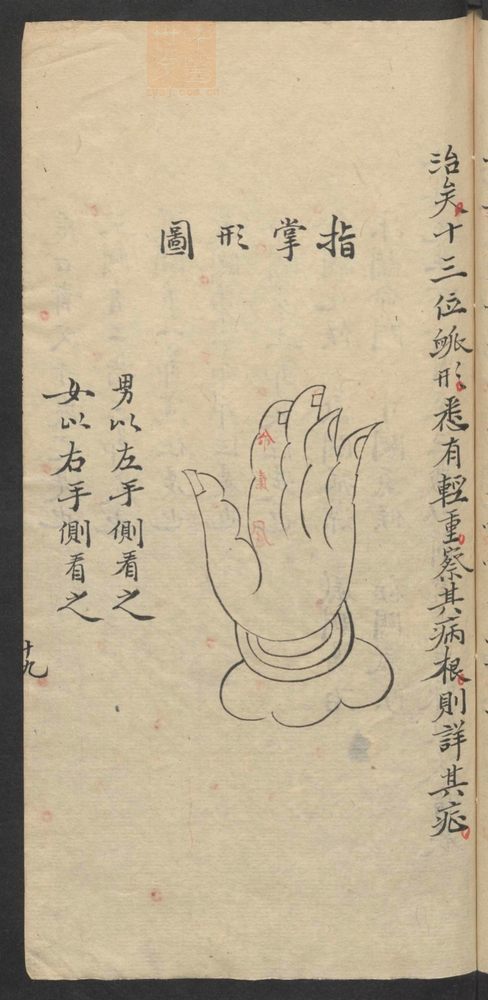 治矣十三位脈形悉有輕重察其病根則詳其症
指掌形圖
命氣風
男以左手側看之
女以右手側看之
十九